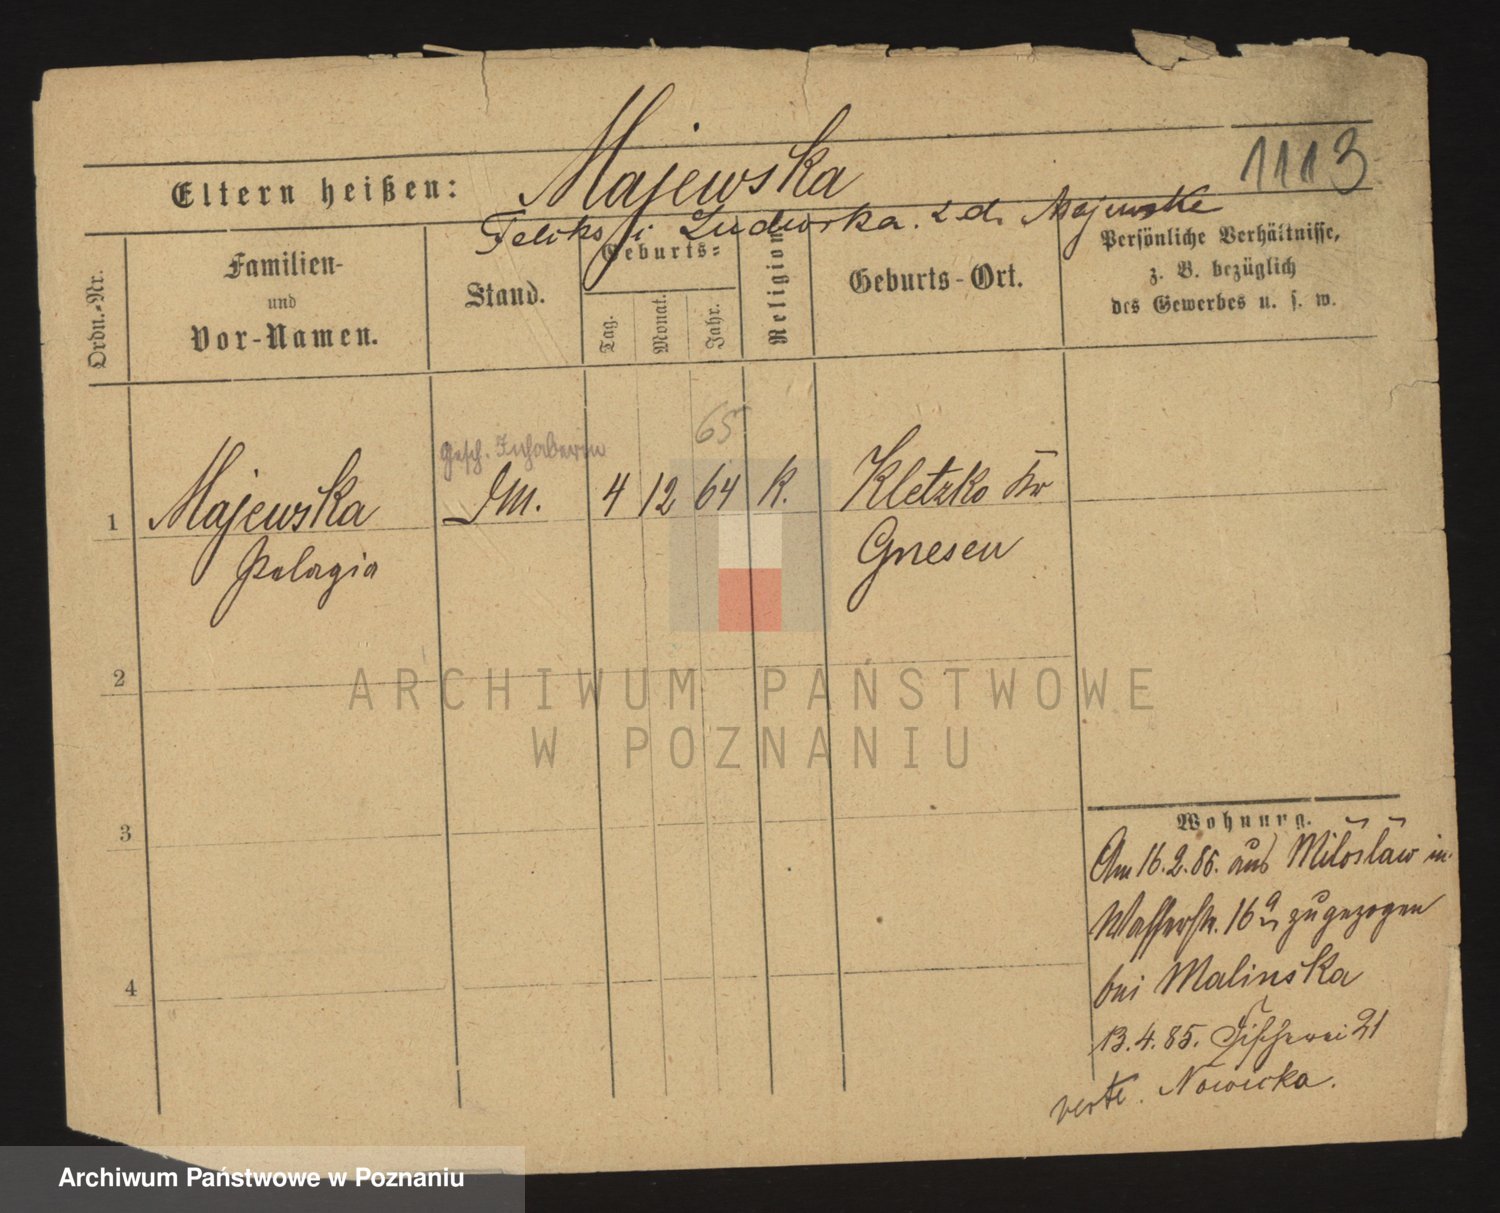 Majewska
1113
Eltern heißen:
Feliks i Ludwika z d. Majewska
Ordn.-Nr.
Familien-
und
Vor-Namen.
Stand.
Geburts-
Tag.
Monat.
Jahr.
Religion
Geburts-Ort.
Persönliche Verhältnisse,
z. B. bezüglich
des Gewerbes u. s. w.
65
Gesch. Inhaberin
1 Majewska 4 12 64 K. Kletzko Kr
Pelagia Gnesen
2
ARCHIWUM PAŃSTWOWE
W POZNANIU
3
4
Wohnung.
Am 16.2.85. aus Miloslaw in
Wasserstr. 16a zugezogen
bei Malinska
13.4.85. Fischerei 21
verte. Nowicka.
Archiwum Państwowe w Poznaniu